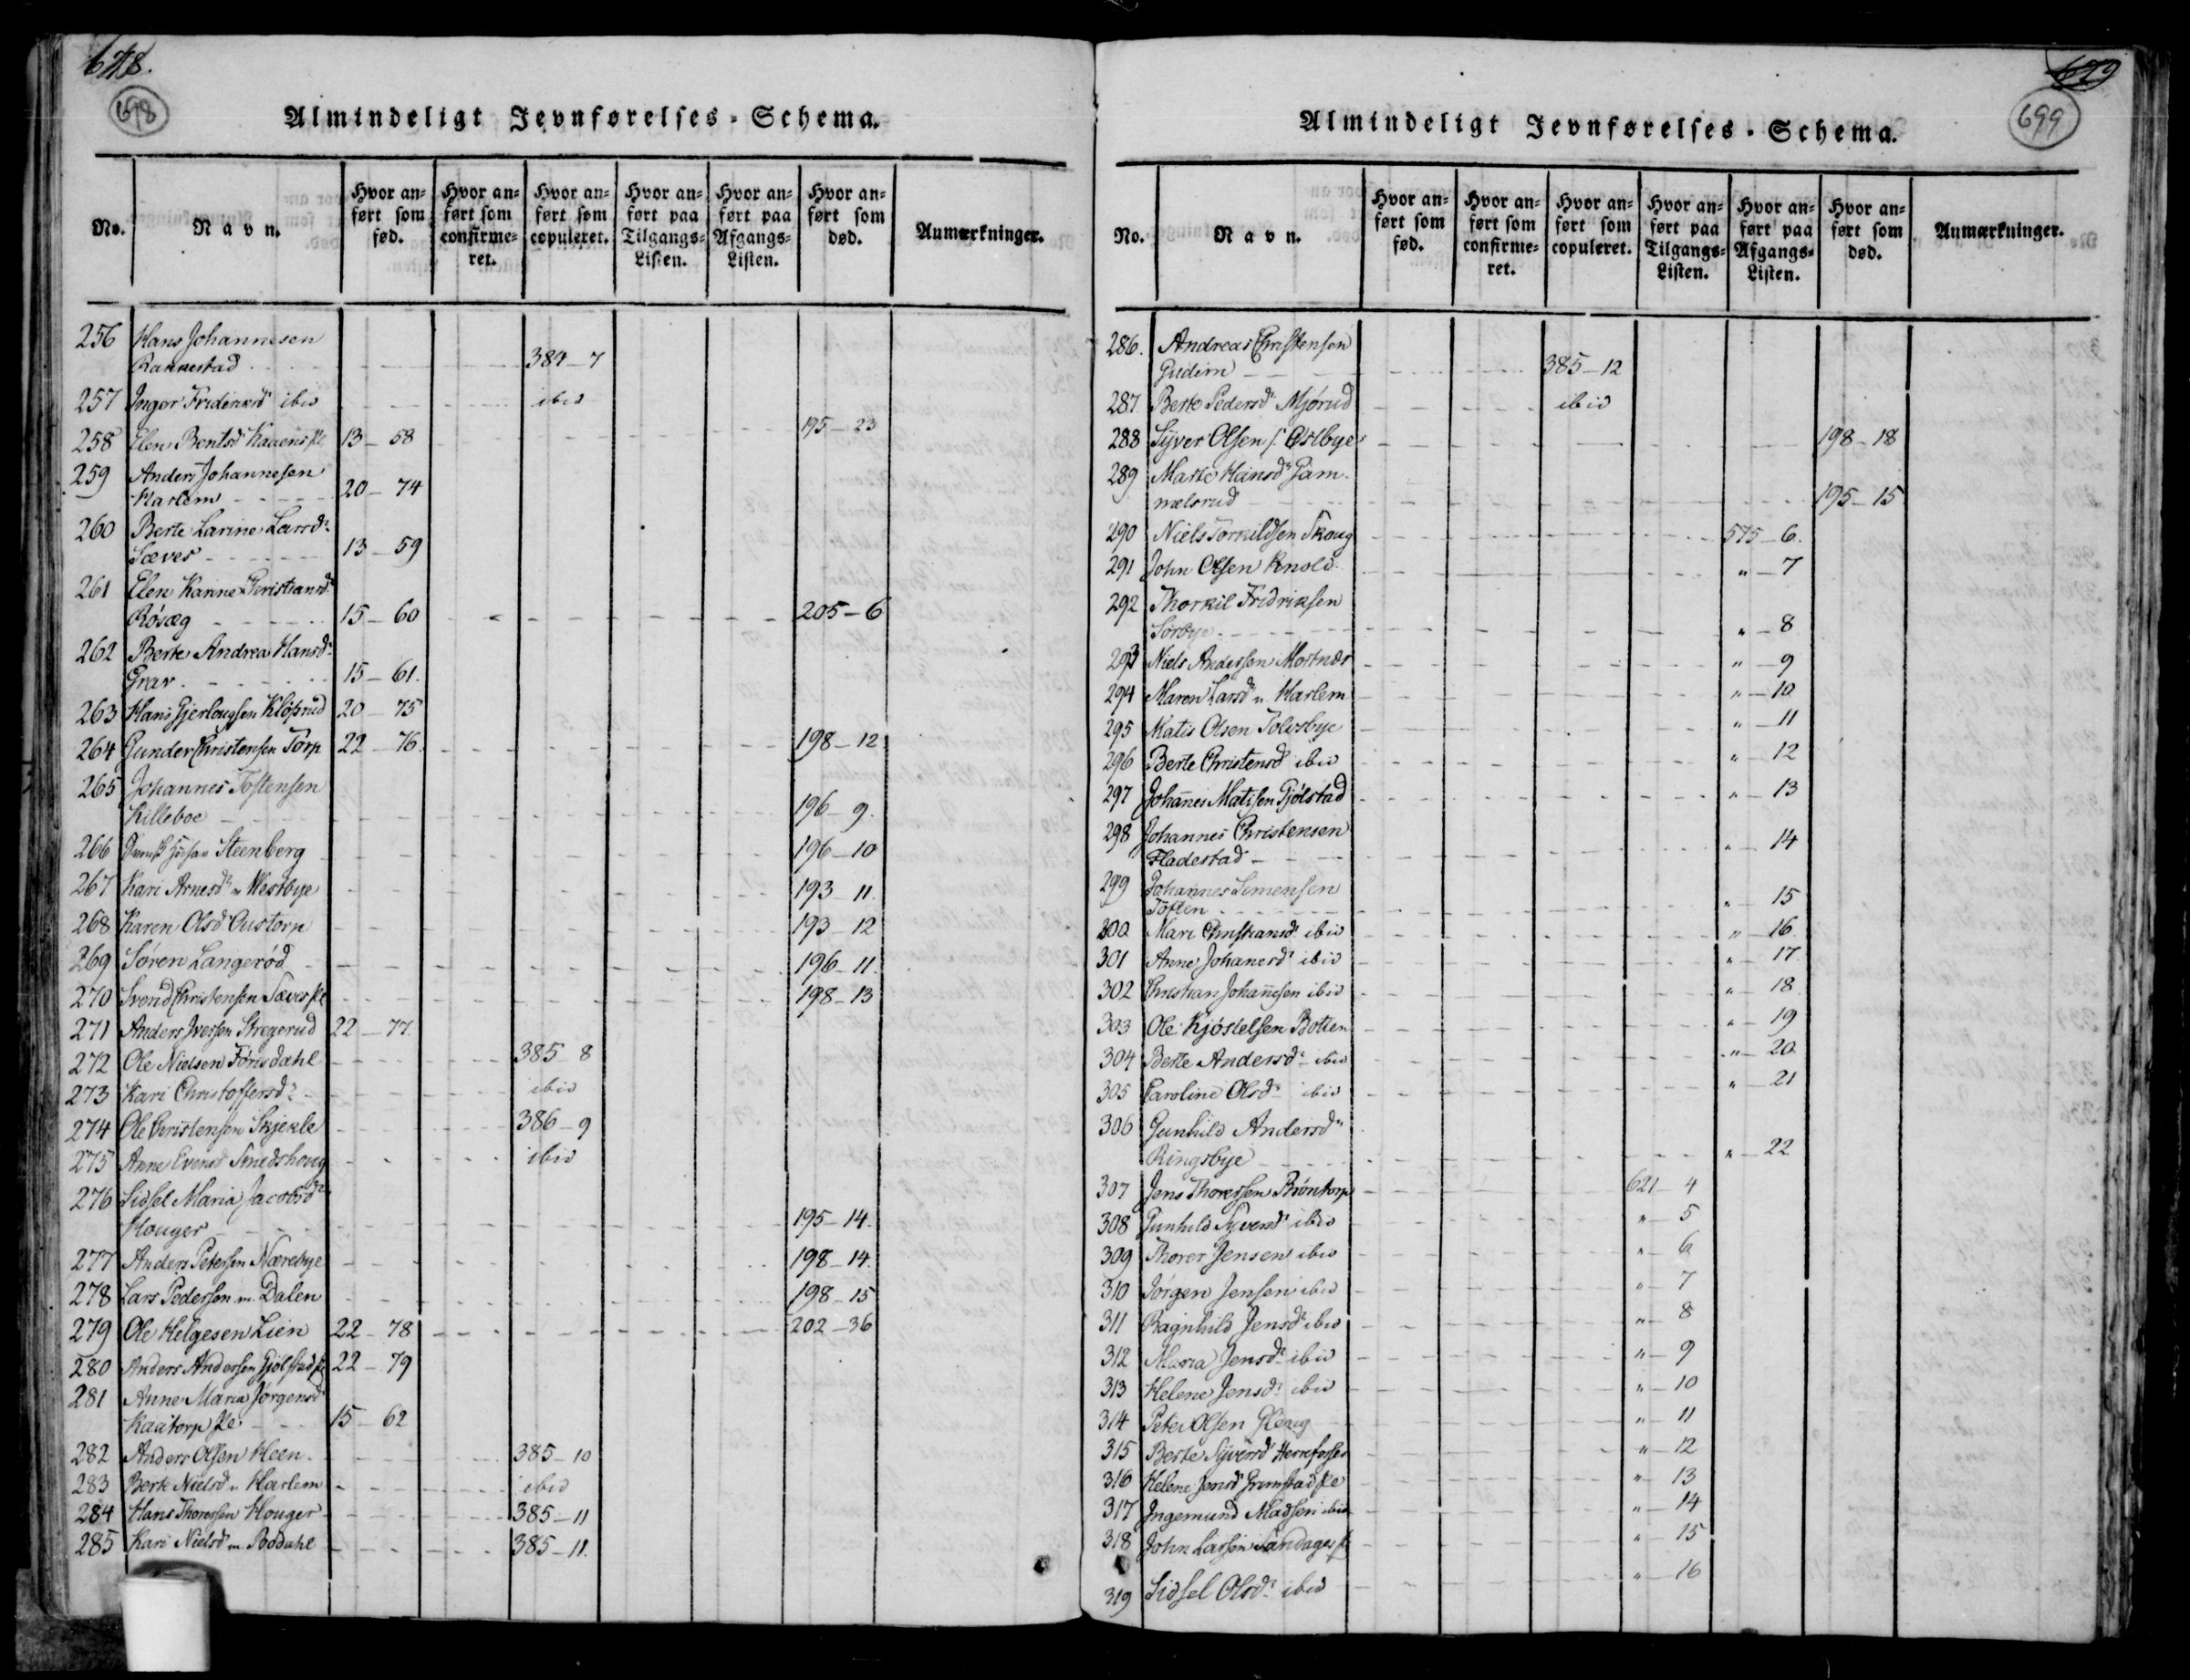 698
Almindeligt Jevnførelses-Schema.
No. Navn. Hvor anført som fød. Hvor anført som confirmeret. Hvor anført som copuleret. Hvor anført paa Tilgangs-Listen. Hvor anført paa Afgangs-Listen. Hvor anført som død. Anmærkninger.
256 Hans Johannesen
Rannestad 384-7
257 Inger ibid ibid
258 Elen Bentsd 13-58 195-23
259 Anders Johannesen
Harlem 20-74
260 Berte Larine Larsdr
Sæves 13-59
261 Elen Karine Christiansdr
Røsæg 15-60 205-6
262 Berte Andrea Hansdr
Grav 15-61.
263 Hans Gjerlougsen Kløsrud 20-75
264 Gunder Christensen Torp 22-76. 198-12
265 Johannes Tostensen
Killeboe 196-9.
266 Steenberg 196-10
267 Kari Arnesdr Westbye 193-11.
268 Karen Olsd Oustorp 193-12
269 Søren Langerød 196-11.
270 Svend Christensen 198-13
271 Anders Iversen Stregerud 22-77.
272 Ole Nielsen Førisdahl 385-8
273 Kari Christoffersdr ibid
274 Ole Christensen Skjekle 386-9
275 Anne Evensd Smedshoug ibid
276 Sidsel Maria Jacobsdr
Houger 195-14.
277 Anders Petersen Nærebye 198-14.
278 Lars Pedersen Dalen 198-15
279 Ole Helgesen Lien 22-78 202-36
280 Anders Andersen Gjølstad 22-79
281 Anne Maria Jørgensd
Kaatorp 15-62
282 Anders Olsen Heen. 385-10
283 Berte Nielsd Harlem ibid
284 Hans Thoresen Houger 385-11
285 Kari Nielsd Boddahl 385-11.
699
Almindeligt Jevnførelses-Schema.
No. Navn. Hvor anført som fød. Hvor anført som confirmeret. Hvor anført som copuleret. Hvor anført paa Tilgangs-Listen. Hvor anført paa Afgangs-Listen. Hvor anført som død. Anmærkninger.
286. Andreas Christensen
Gudim 385-12
287 Berte Pedersdr Mjørud ibid
288 Syver Olsen Østbye 198-18
289 Marte Hansdr Gam-
melsrud 195-15
290 Niels Torkildsen Skoug 575-6.
291 John Olsen Knold " - 7
292 Thorkil Fridriksen
Sørbye " - 8
293 Niels Andersen Mortnes " - 9
294 Maren Larsd Harlem " - 10
295 Matis Olsen Tolvsbye " - 11
296 Berte Christensd ibid " - 12
297 Johanes Matisen Gjølstad " - 13
298 Johannes Christensen
Fladestad " - 14
299 Johannes Simensen
Toften " - 15
300 Mari Christiansdr ibid " - 16.
301 Anne Johanesdr ibid " - 17
302 Christian Johanesen ibid " - 18
303 Ole Kjøstelsen Botten " - 19
304 Berte Andersdr ibid " - 20
305 Caroline Olsdr ibid " - 21
306 Gunhild Andersdr
Ringsbye " - 22
307 Jens Thoresen Brøntorp 621-4
308 Gunhild Syversdr ibid " - 5
309 Thorer Jensen ibid " - 6
310 Jørgen Jensen ibid " - 7
311 Ragnhild Jensdr ibid " - 8
312 Maria Jensdr ibid " - 9
313 Helene Jensdr ibid " - 10
314 Peter Olsen Gleng " - 11
315 Berte Syversd Herrefosses " - 12
316 Helene Jensdr Grimstad " - 13
317 Ingemund Madsen ibid " - 14
318 John Larsen Sandager " - 15
319 Sidsel Olsdr ibid " - 16